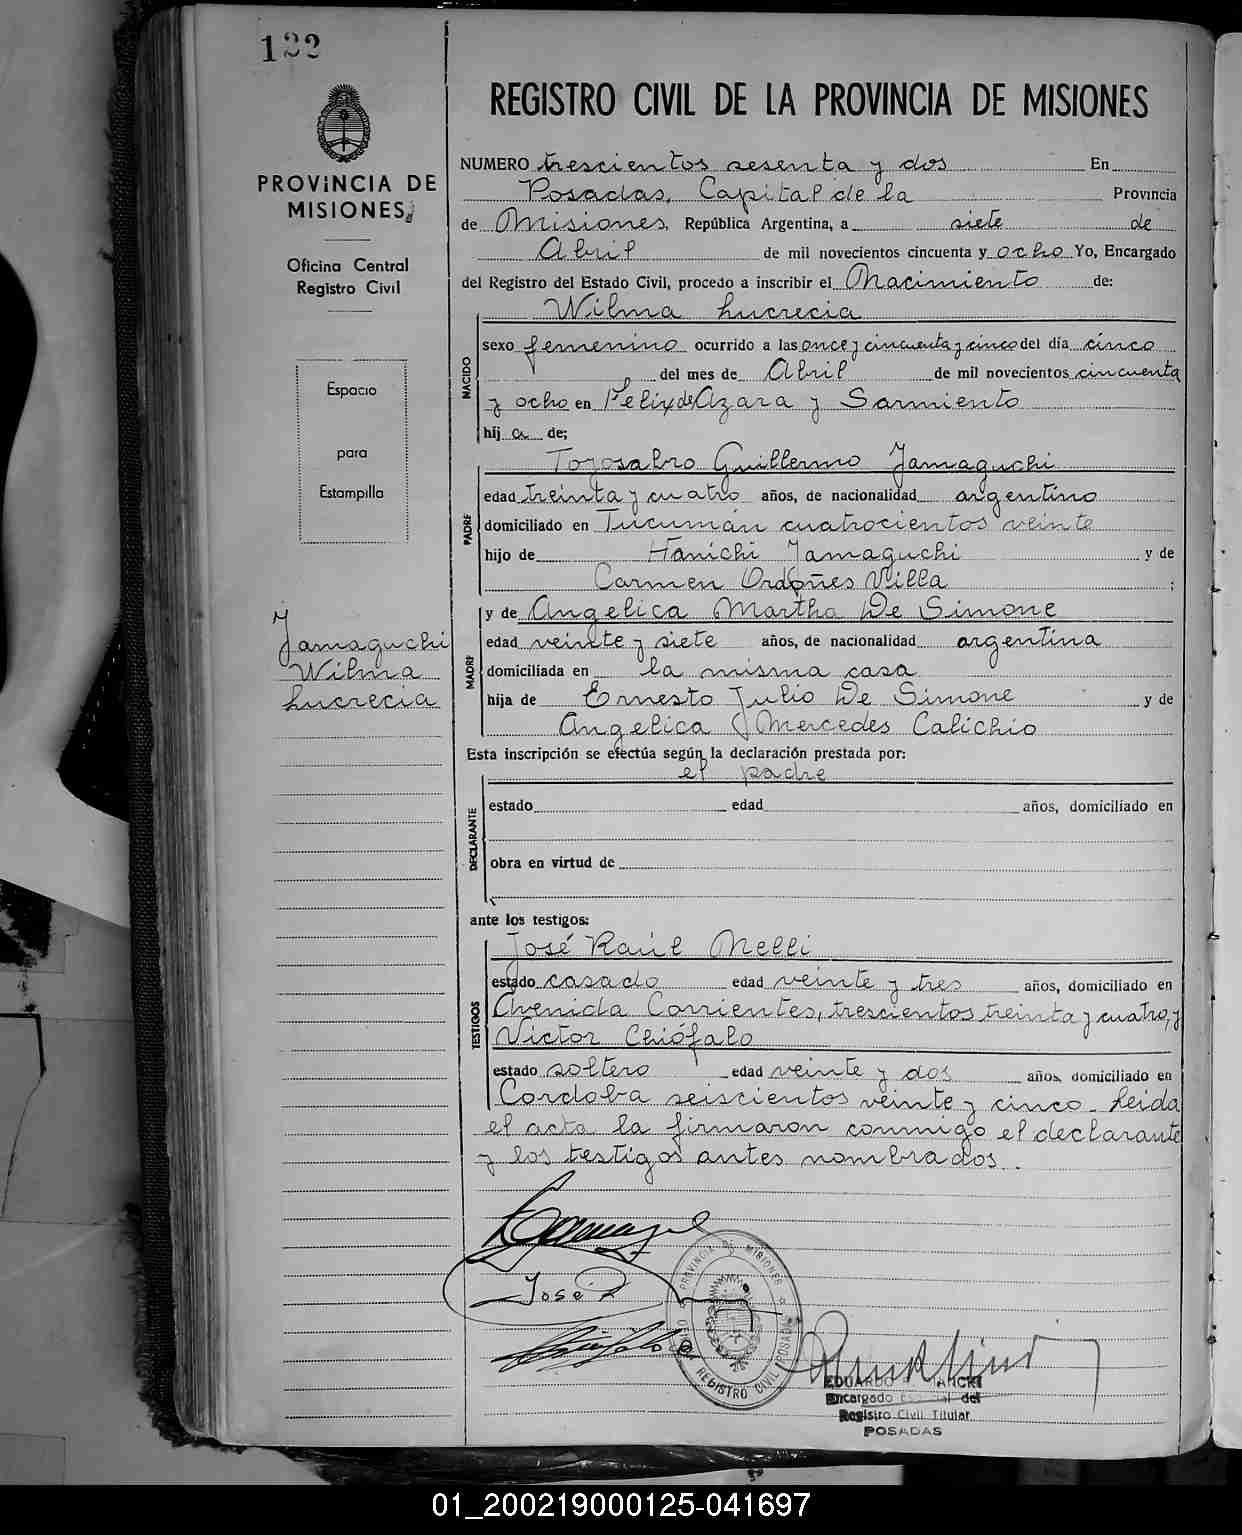 122
PROVINCIA DE
MISIONES
Oficina Central
Registro Civil
Espacio
para
Estampilla
Yamaguchi
Wilma
Lucrecia
REGISTRO CIVIL DE LA PROVINCIA DE MISIONES
NUMERO trescientos sesenta y dos En
Posadas, Capital de la Provincia
de Misiones, República Argentina, a siete de
Abril de mil novecientos cincuenta y ocho Yo, Encargado
del Registro del Estado Civil, procedo a inscribir el Nacimiento de:
Wilma Lucrecia
NACIDO
sexo femenino ocurrido a las once y cincuenta y cinco del día cinco
del mes de Abril de mil novecientos cincuenta
y ocho en Félix de Azara y Sarmiento
hij a de;
Toyosabro Guillermo Yamaguchi
PADRE
edad treinta y cuatro años, de nacionalidad argentino
domiciliado en Tucumán cuatrocientos veinte
hijo de Hanichi Yamaguchi y de
Carmen Ordoñes Villa ;
y de Angelica Martha De Simone
MADRE
edad veinte y siete años, de nacionalidad argentina
domiciliada en la misma casa
hija de Ernesto Julio De Simone y de
Angelica Mercedes Calichio
Esta inscripción se efectúa según la declaración prestada por:
el padre
DECLARANTE
estado edad años, domiciliado en
obra en virtud de
ante los testigos:
José Raúl Melli
TESTIGOS
estado casado edad veinte y tres años, domiciliado en
Avenida Corrientes, trescientos treinta y cuatro, y
Victor Chiófalo
estado soltero edad veinte y dos años, domiciliado en
Cordoba seiscientos veinte y cinco. Leida
el acta la firmaron conmigo el declarante
y los testigos antes nombrados.
José
PROVINCIA DE MISIONES
REGISTRO CIVIL POSADAS
EDUARDO
Encargado del
Registro Civil Titular
POSADAS
01_200219000125-041697